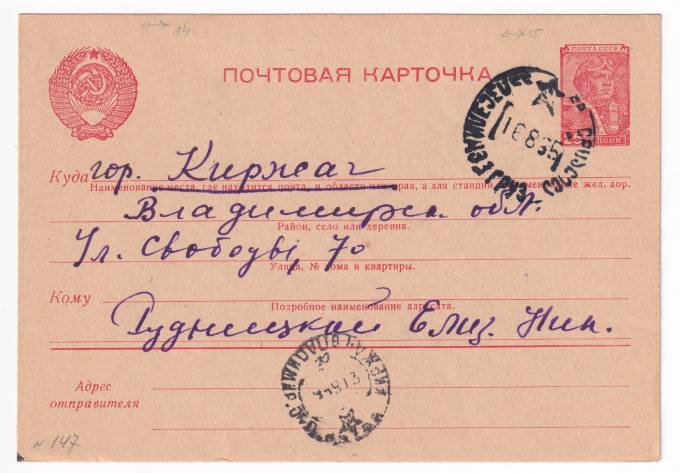 34
15
ПОЧТОВАЯ КАРТОЧКА
ПОЧТА СССР
КОПЕЕК
Куда гор. Киржач
Наименование места, где находится почта, и области или края, а для станций наименование жел. дор.
Владимирск. обл.
Район, село или деревня.
Ул. Свободы, 70
Улица, № дома и квартиры.
Кому
Подробное наименование адресата.
Рудницкой Елиз. Ник.
КИРЖАЧ ВЛАДИМИР
Адрес
отправителя
N 147